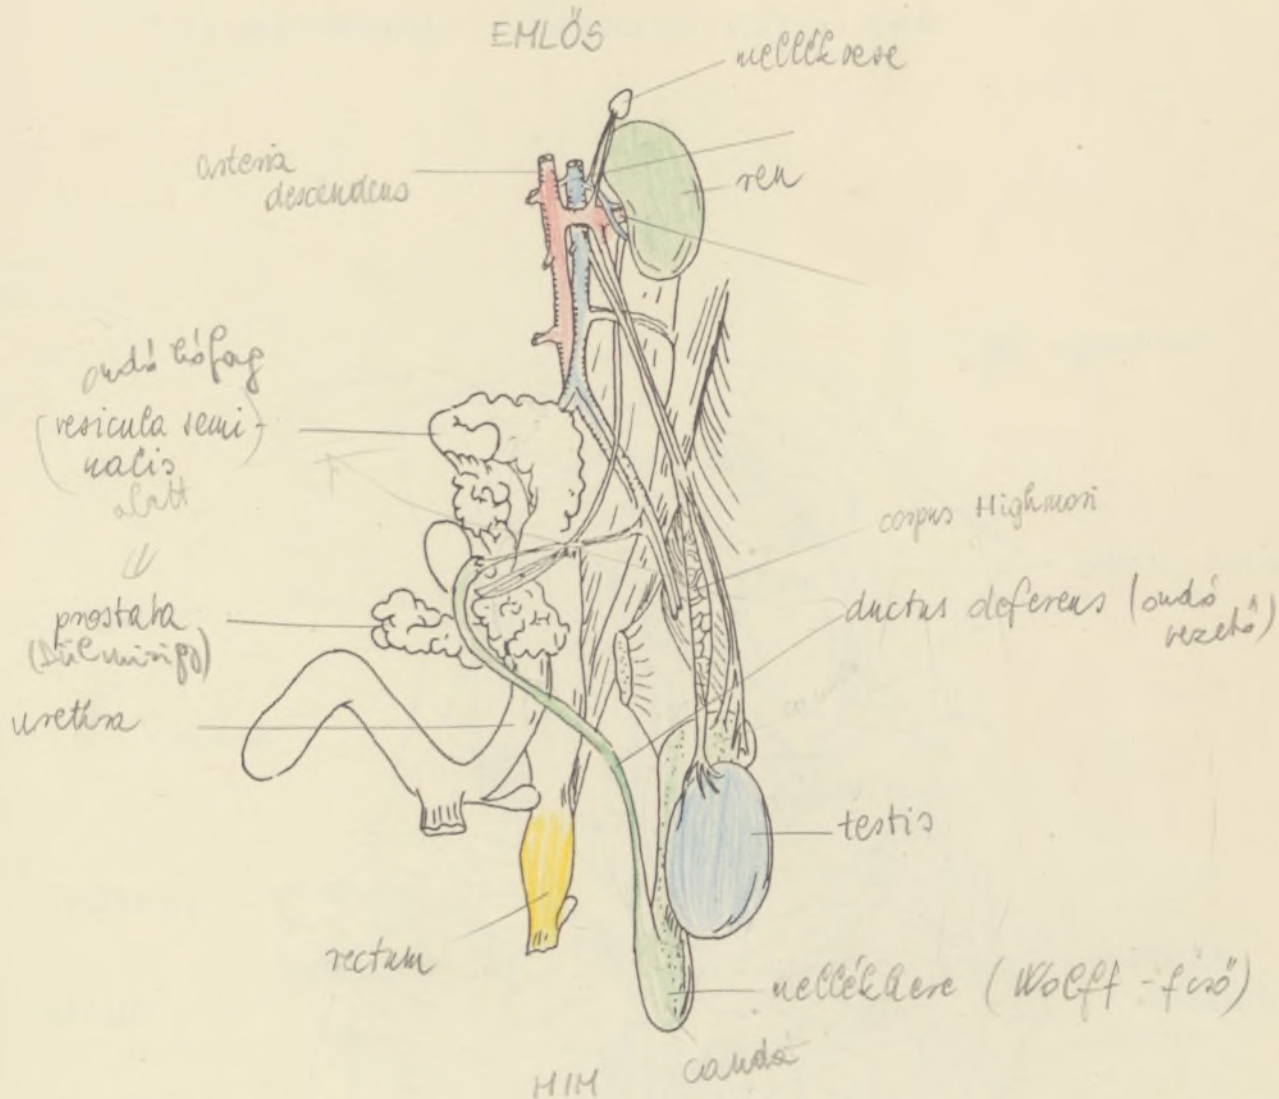 EMLŐS
mellékvese
arteria
descendens
ren
ondóhólyag
(vesicula semi-
nalis
alatt
prostata
(Dülmirigy)
urethra
corpus Highmori
ductus deferens (ondó
vezető)
testis
rectum
mellékhere (Wolff-féső)
cauda
HIM